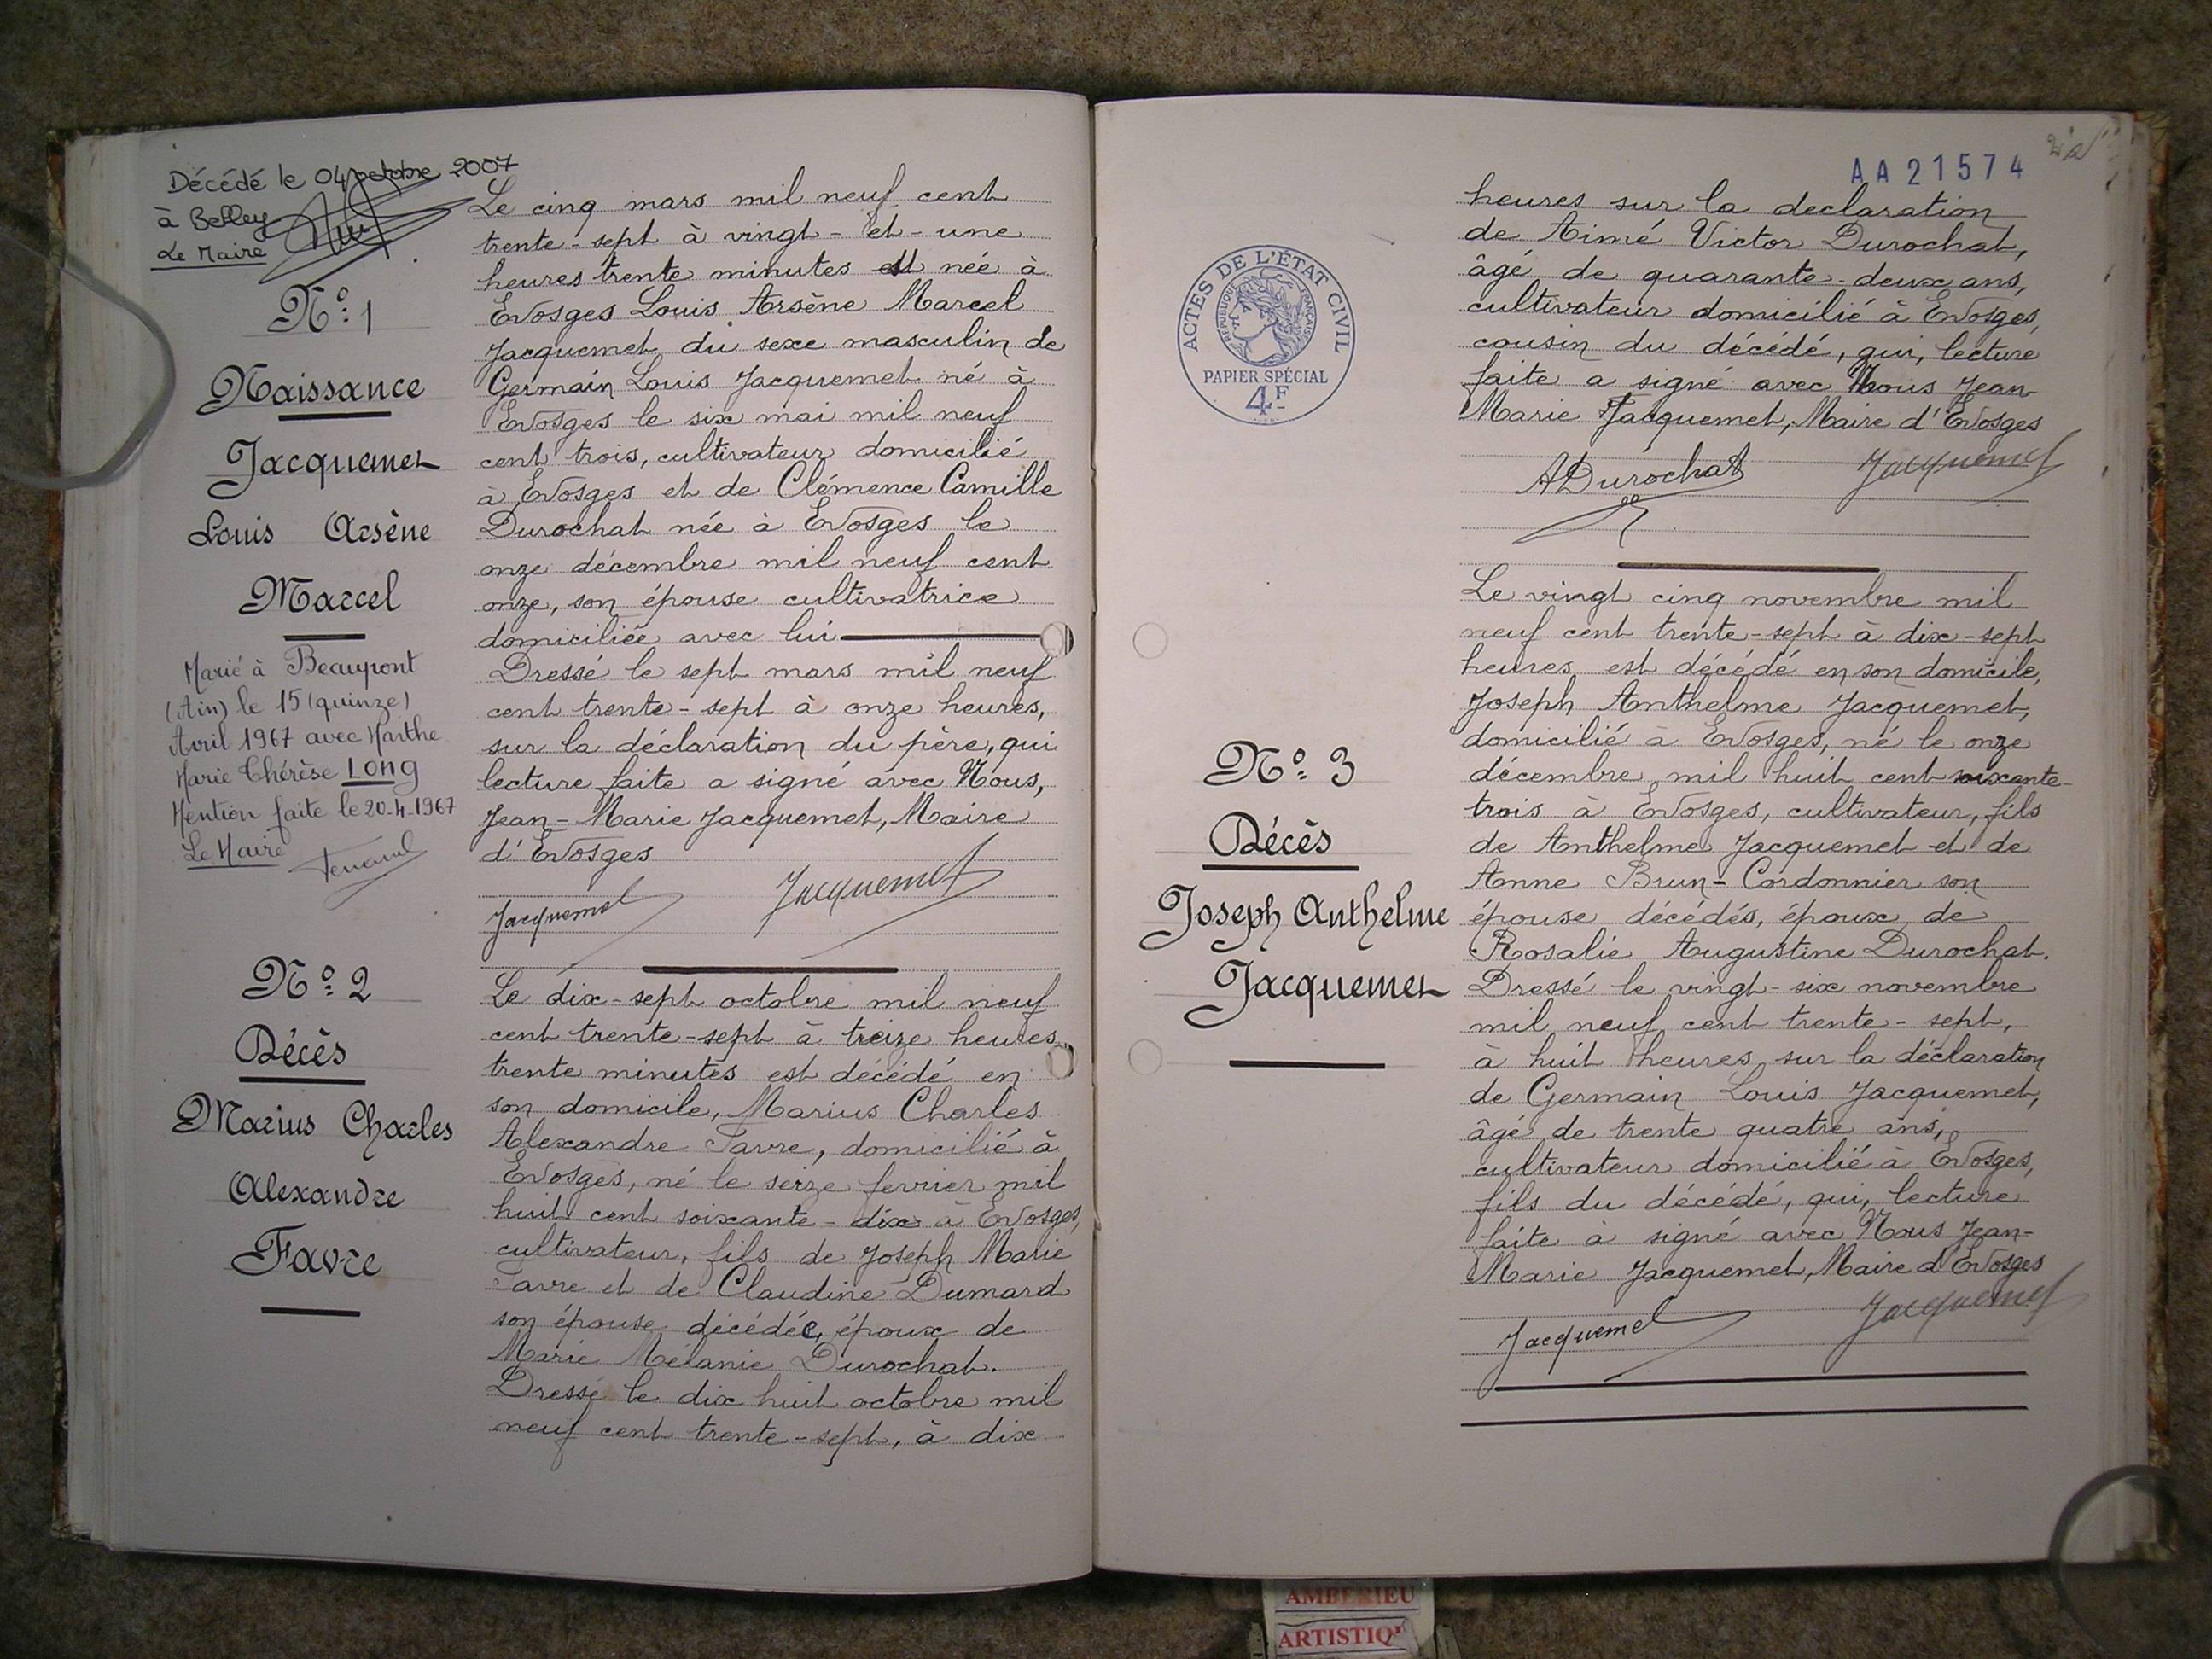 Décédé le 04 octobre 2007
à Belley
Le Maire
N° 1
Naissance
Jacquemet
Louis Arsène
Marcel
Marié à Beaupont
(Ain) le 15 (quinze)
Avril 1967 avec Marthe
Marie Thérèse LONG
Mention faite le 20-4-1967
Le Maire
Le cinq mars mil neuf cent
trente-sept à vingt-et-une
heures trente minutes est née à
Evosges Louis Arsène Marcel
Jacquemet du sexe masculin de
Germain Louis Jacquemet né à
Evosges le six mai mil neuf
cent trois, cultivateur domicilié
à Evosges et de Clémence Camille
Durochat née à Evosges le
onze décembre mil neuf cent
onze, son épouse cultivatrice
domiciliée avec lui
Dressé le sept mars mil neuf
cent trente-sept à onze heures,
sur la déclaration du père, qui
lecture faite a signé avec Nous,
Jean-Marie Jacquemet, Maire
d'Evosges
Jacquemet Jacquemet
N° 2
Décès
Marius Charles
Alexandre
Favre
Le dix-sept octobre mil neuf
cent trente-sept à treize heures
trente minutes est décédé en
son domicile, Marius Charles
Alexandre Favre, domicilié à
Evosges, né le seize fevrier mil
huit cent soixante-dix à Evosges,
cultivateur, fils de Joseph Marie
Favre et de Claudine Dumard
son épouse décédée, époux de
Marie Mélanie Durochat.
Dressé le dix huit octobre mil
neuf cent trente-sept, à dix
AA 21574
ACTES DE L'ÉTAT CIVIL
RÉPUBLIQUE FRANÇAISE
PAPIER SPÉCIAL
4F
heures sur la declaration
de Aimé Victor Durochat,
âgé de quarante-deux ans,
cultivateur domicilié à Evosges,
cousin du décédé, qui, lecture
faite a signé avec Nous Jean
Marie Jacquemet, Maire d'Evosges
ADurochat Jacquemet
N° 3
Décès
Joseph Anthelme
Jacquemet
Le vingt cinq novembre mil
neuf cent trente-sept à dix-sept
heures est décédé en son domicile,
Joseph Anthelme Jacquemet,
domicilié à Evosges, né le onze
décembre mil huit cent soixante-
trois à Evosges, cultivateur, fils
de Anthelme Jacquemet et de
Anne Brun-Cordonnier son
épouse décédés, époux de
Rosalie Augustine Durochat.
Dressé le vingt-six novembre
mil neuf cent trente-sept,
à huit heures, sur la déclaration
de Germain Louis Jacquemet,
âgé de trente quatre ans,
cultivateur domicilié à Evosges,
fils du décédé, qui, lecture
faite à signé avec Nous Jean-
Marie Jacquemet, Maire d'Evosges
Jacquemet Jacquemet
AMBERIEU
ARTISTIQ